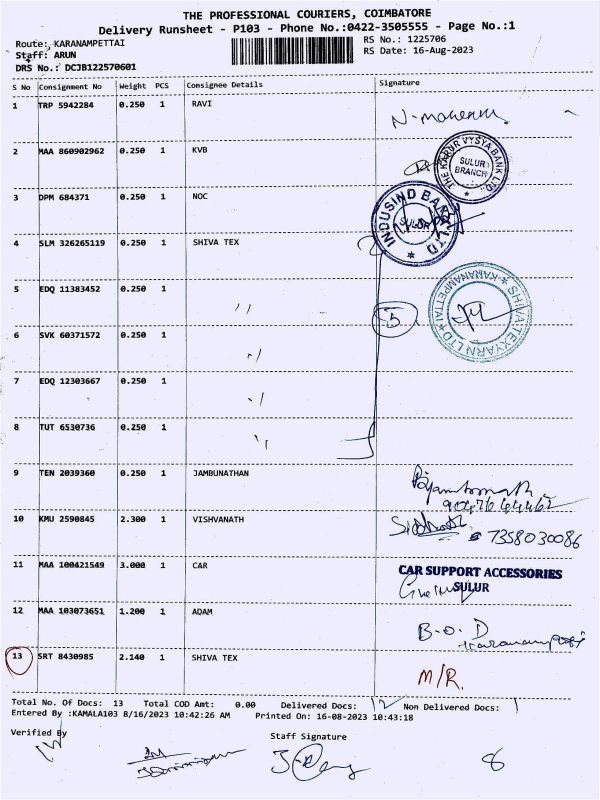 THE PROFESSIONAL COURIERS, COIMBATORE
Delivery Runsheet - P103 - Phone No.:0422-3505555 - Page No.:1
Route: KARANAMPETTAI
RS No.: 1225706
Staff: ARUN
RS Date: 16-Aug-2023
DRS No.: DCJB122570601
S No Consignment No Weight PCS Consignee Details Signature
1 TRP 5942284 0.250 1 RAVI
2 MAA 860902962 0.250 1 KVB
THE KARUR VYSYA BANK LTD
SULUR BRANCH
3 DPM 684371 0.250 1 NOC
INDUSIND BANK LTD
SULUR
4 SLM 326265119 0.250 1 SHIVA TEX
5 EDQ 11383452 0.250 1 ,,
5
SHIVATEXYARN LTD
KARANAMPETTAI
6 SVK 60371572 0.250 1
7 EDQ 12303667 0.250 1
8 TUT 6530736 0.250 1
9 TEN 2039360 0.250 1 JAMBUNATHAN
10 KMU 2590845 2.300 1 VISHVANATH
7358030086
11 MAA 100421549 3.000 1 CAR
CAR SUPPORT ACCESSORIES
SULUR
12 MAA 103073651 1.200 1 ADAM
B.O.D
13 SRT 8430985 2.140 1 SHIVA TEX M/R.
Total No. Of Docs: 13 Total COD Amt: 0.00 Delivered Docs: 12 Non Delivered Docs: 1
Entered By :KAMALA103 8/16/2023 10:42:26 AM Printed On: 16-08-2023 10:43:18
Verified By
Staff Signature
8